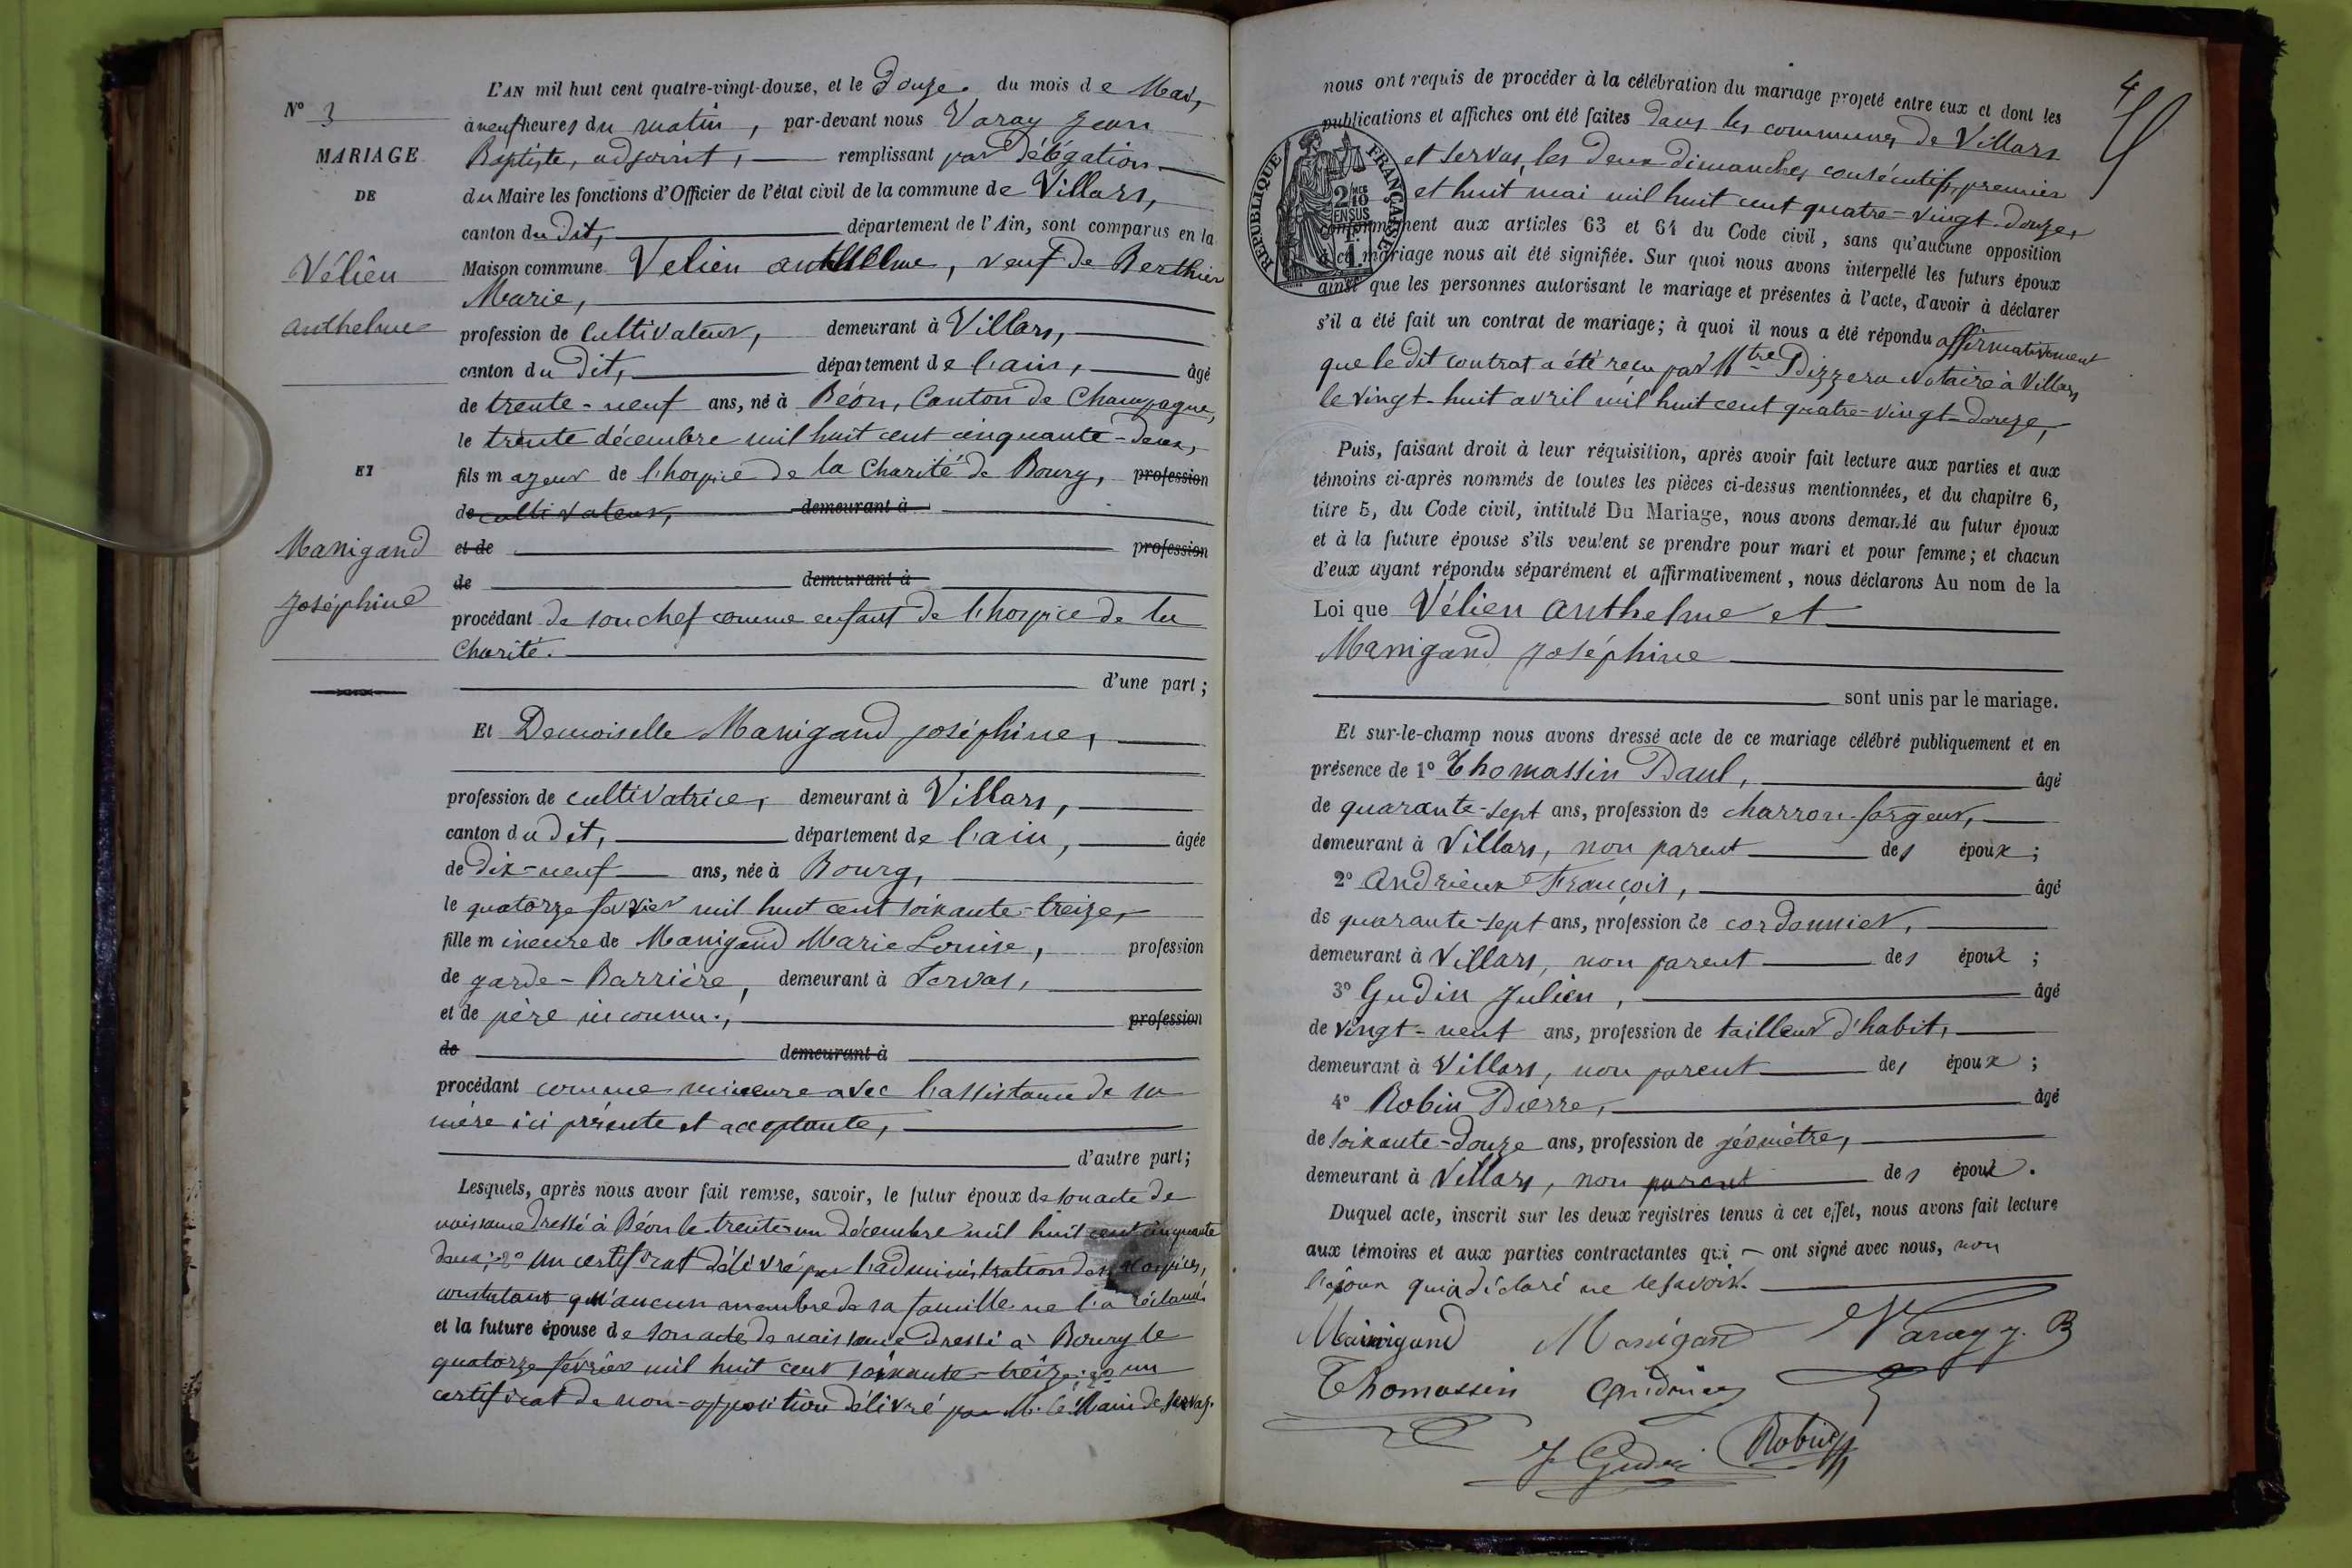 N° 3
MARIAGE
DE
Vélien
Anthelme
ET
Manigand
Joséphine
L'AN mil huit cent quatre-vingt-douze, et le Douze du mois de Mai,
à neuf heures du matin, par-devant nous Varay Jean
Baptiste, adjoint, remplissant par Délégation
du Maire les fonctions d'Officier de l'état civil de la commune de Villars,
canton du dit, département de l'Ain, sont comparus en la
Maison commune Velien Anthelme, veuf de Berthier
Marie,
profession de cultivateur, demeurant à Villars,
canton du Dit, département de l'ain, âgé
de trente-neuf ans, né à Béon, Canton de Champagne,
le trente décembre mil huit cent cinquante-deux,
fils majeur de l'hospice de la Charité de Bourg, profession
de cultivateur, demeurant à
et de profession
de demeurant à
procédant de son chef comme enfant de l'hospice de la
Charité.
d'une part;
Et Demoiselle Manigand Joséphine,
profession de cultivatrice, demeurant à Villars,
canton du dit, département de l'ain, âgée
de Dix-neuf ans, née à Bourg,
le quatorze février mil huit cent soixante-treize,
fille mineure de Manigand Marie Louise, profession
de garde-Barrière, demeurant à Servas,
et de père inconnu, profession
de demeurant à
procédant comme mineure avec l'assistance de sa
mère ici présente et acceptante,
d'autre part;
Lesquels, après nous avoir fait remise, savoir, le futur époux de son acte de
naissance dressé à Béon le trente-un décembre mil huit cent cinquante
deux; 2° un certificat délivré par l'administration des hospices,
constatant qu'aucun membre de sa famille ne l'a réclamé
et la future épouse de son acte de naissance dressé à Bourg le
quatorze février mil huit cent soixante-treize; 2° un
certificat de non-opposition délivré par M. le Maire de Servas.
4
nous ont requis de procéder à la célébration du mariage projeté entre eux et dont les
publications et affiches ont été faites dans les communes de Villars
et Servas, les deux dimanches consécutifs, premier
et huit mai mil huit cent quatre-vingt-douze,
conformément aux articles 63 et 64 du Code civil, sans qu'aucune opposition
à ce mariage nous ait été signifiée. Sur quoi nous avons interpellé les futurs époux
ainsi que les personnes autorisant le mariage et présentes à l'acte, d'avoir à déclarer
s'il a été fait un contrat de mariage; à quoi il nous a été répondu affirmativement
que le dit contrat a été reçu par Mtre Dizzera Notaire à Villars
le vingt-huit avril mil huit cent quatre-vingt-douze,
RÉPUBLIQUE FRANÇAISE
2/10
EN SUS
Puis, faisant droit à leur réquisition, après avoir fait lecture aux parties et aux
témoins ci-après nommés de toutes les pièces ci-dessus mentionnées, et du chapitre 6,
titre 5, du Code civil, intitulé Du Mariage, nous avons demandé au futur époux
et à la future épouse s'ils veulent se prendre pour mari et pour femme; et chacun
d'eux ayant répondu séparément et affirmativement, nous déclarons Au nom de la
Loi que Vélien Anthelme et
Manigand Joséphine
sont unis par le mariage.
Et sur-le-champ nous avons dressé acte de ce mariage célébré publiquement et en
présence de 1° Thomassin Paul, âgé
de quarante-sept ans, profession de charron-forgeur,
demeurant à Villars, non parent des époux;
2° Andrieux François, âgé
de quarante-sept ans, profession de cordonnier,
demeurant à Villars, non parent des époux;
3° Gudin Julien, âgé
de vingt-neuf ans, profession de tailleur d'habit,
demeurant à Villars, non parent des époux;
4° Robin Pierre, âgé
de soixante-douze ans, profession de géomètre,
demeurant à Villars, non parent des époux.
Duquel acte, inscrit sur les deux registres tenus à cet effet, nous avons fait lecture
aux témoins et aux parties contractantes qui ont signé avec nous, non
l'époux qui a déclaré ne le savoir.
Manigand Manigand Varay J. B
Thomassin Andrieux
J Gudin Robin